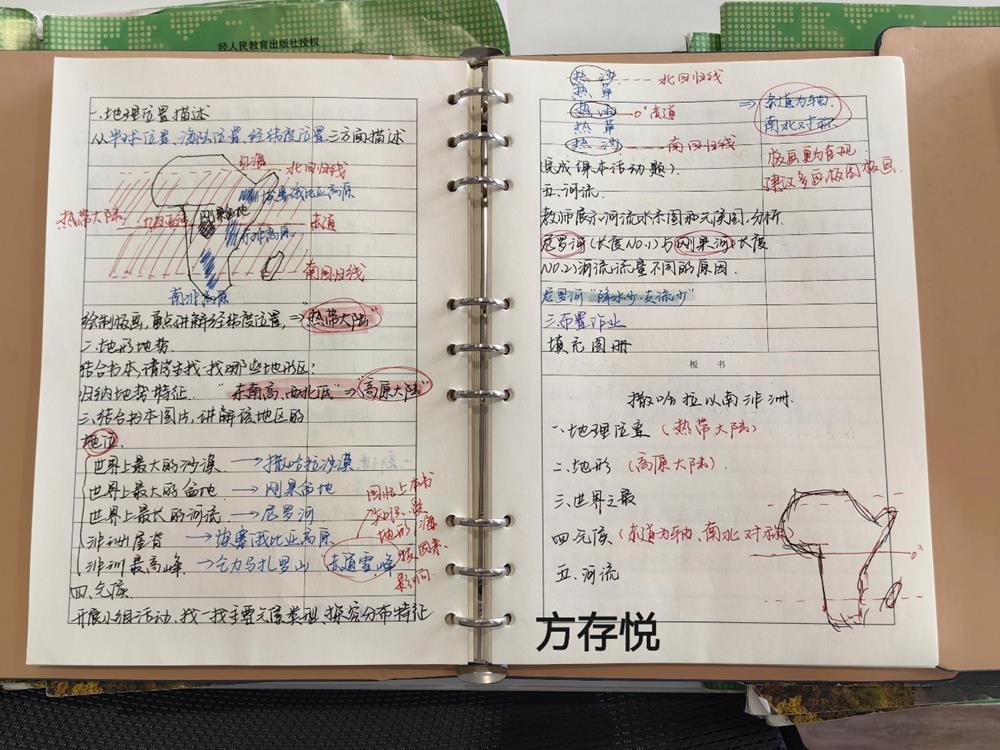 经人民教育出版社授权
一.地理位置描述
从半球位置、海陆位置、经纬度位置三方面描述
红海
北回归线
埃塞俄比亚高原
热带大陆
刚果盆地
赤道
东非高原
南回归线
南非高原
绘制版画,重点讲解经纬度位置,⇒"热带大陆"
二.地形地势.
结合书本,请学生找一找哪些地形区;
归纳地势特征. "东南高、西北低"⇒"高原大陆"
三.结合书本图片,讲解该地区的
地位.
世界上最大的沙漠 → 撒哈拉沙漠
世界上最大的盆地 → 刚果盆地
世界上最长的河流 → 尼罗河
非洲屋脊 → 埃塞俄比亚高原
非洲最高峰 → 乞力马扎罗山 赤道雪峰
地形
因素.
影响.
四.气候.
开展小组活动,找一找主要气候类型,探究分布特征
热沙---北回归线
热草
热雨---0°赤道
热草
热沙---南回归线
⇒ 赤道为轴.
南北对称
版画更为直观.
建议多画版图版画.
完成课本活动题).
五.河流.
教师展示河流水系图和气候图.分析.
尼罗河(长度NO.1)与刚果河(长度
NO.2)河流流量不同的原因.
尼罗河"降水少.支流少"
三.布置作业
填充图册
板 书
撒哈拉以南非洲.
一.地理位置(热带大陆)
二.地形(高原大陆).
三.世界之最
四.气候(赤道为轴、南北对称)
0°
五.河流
方存悦